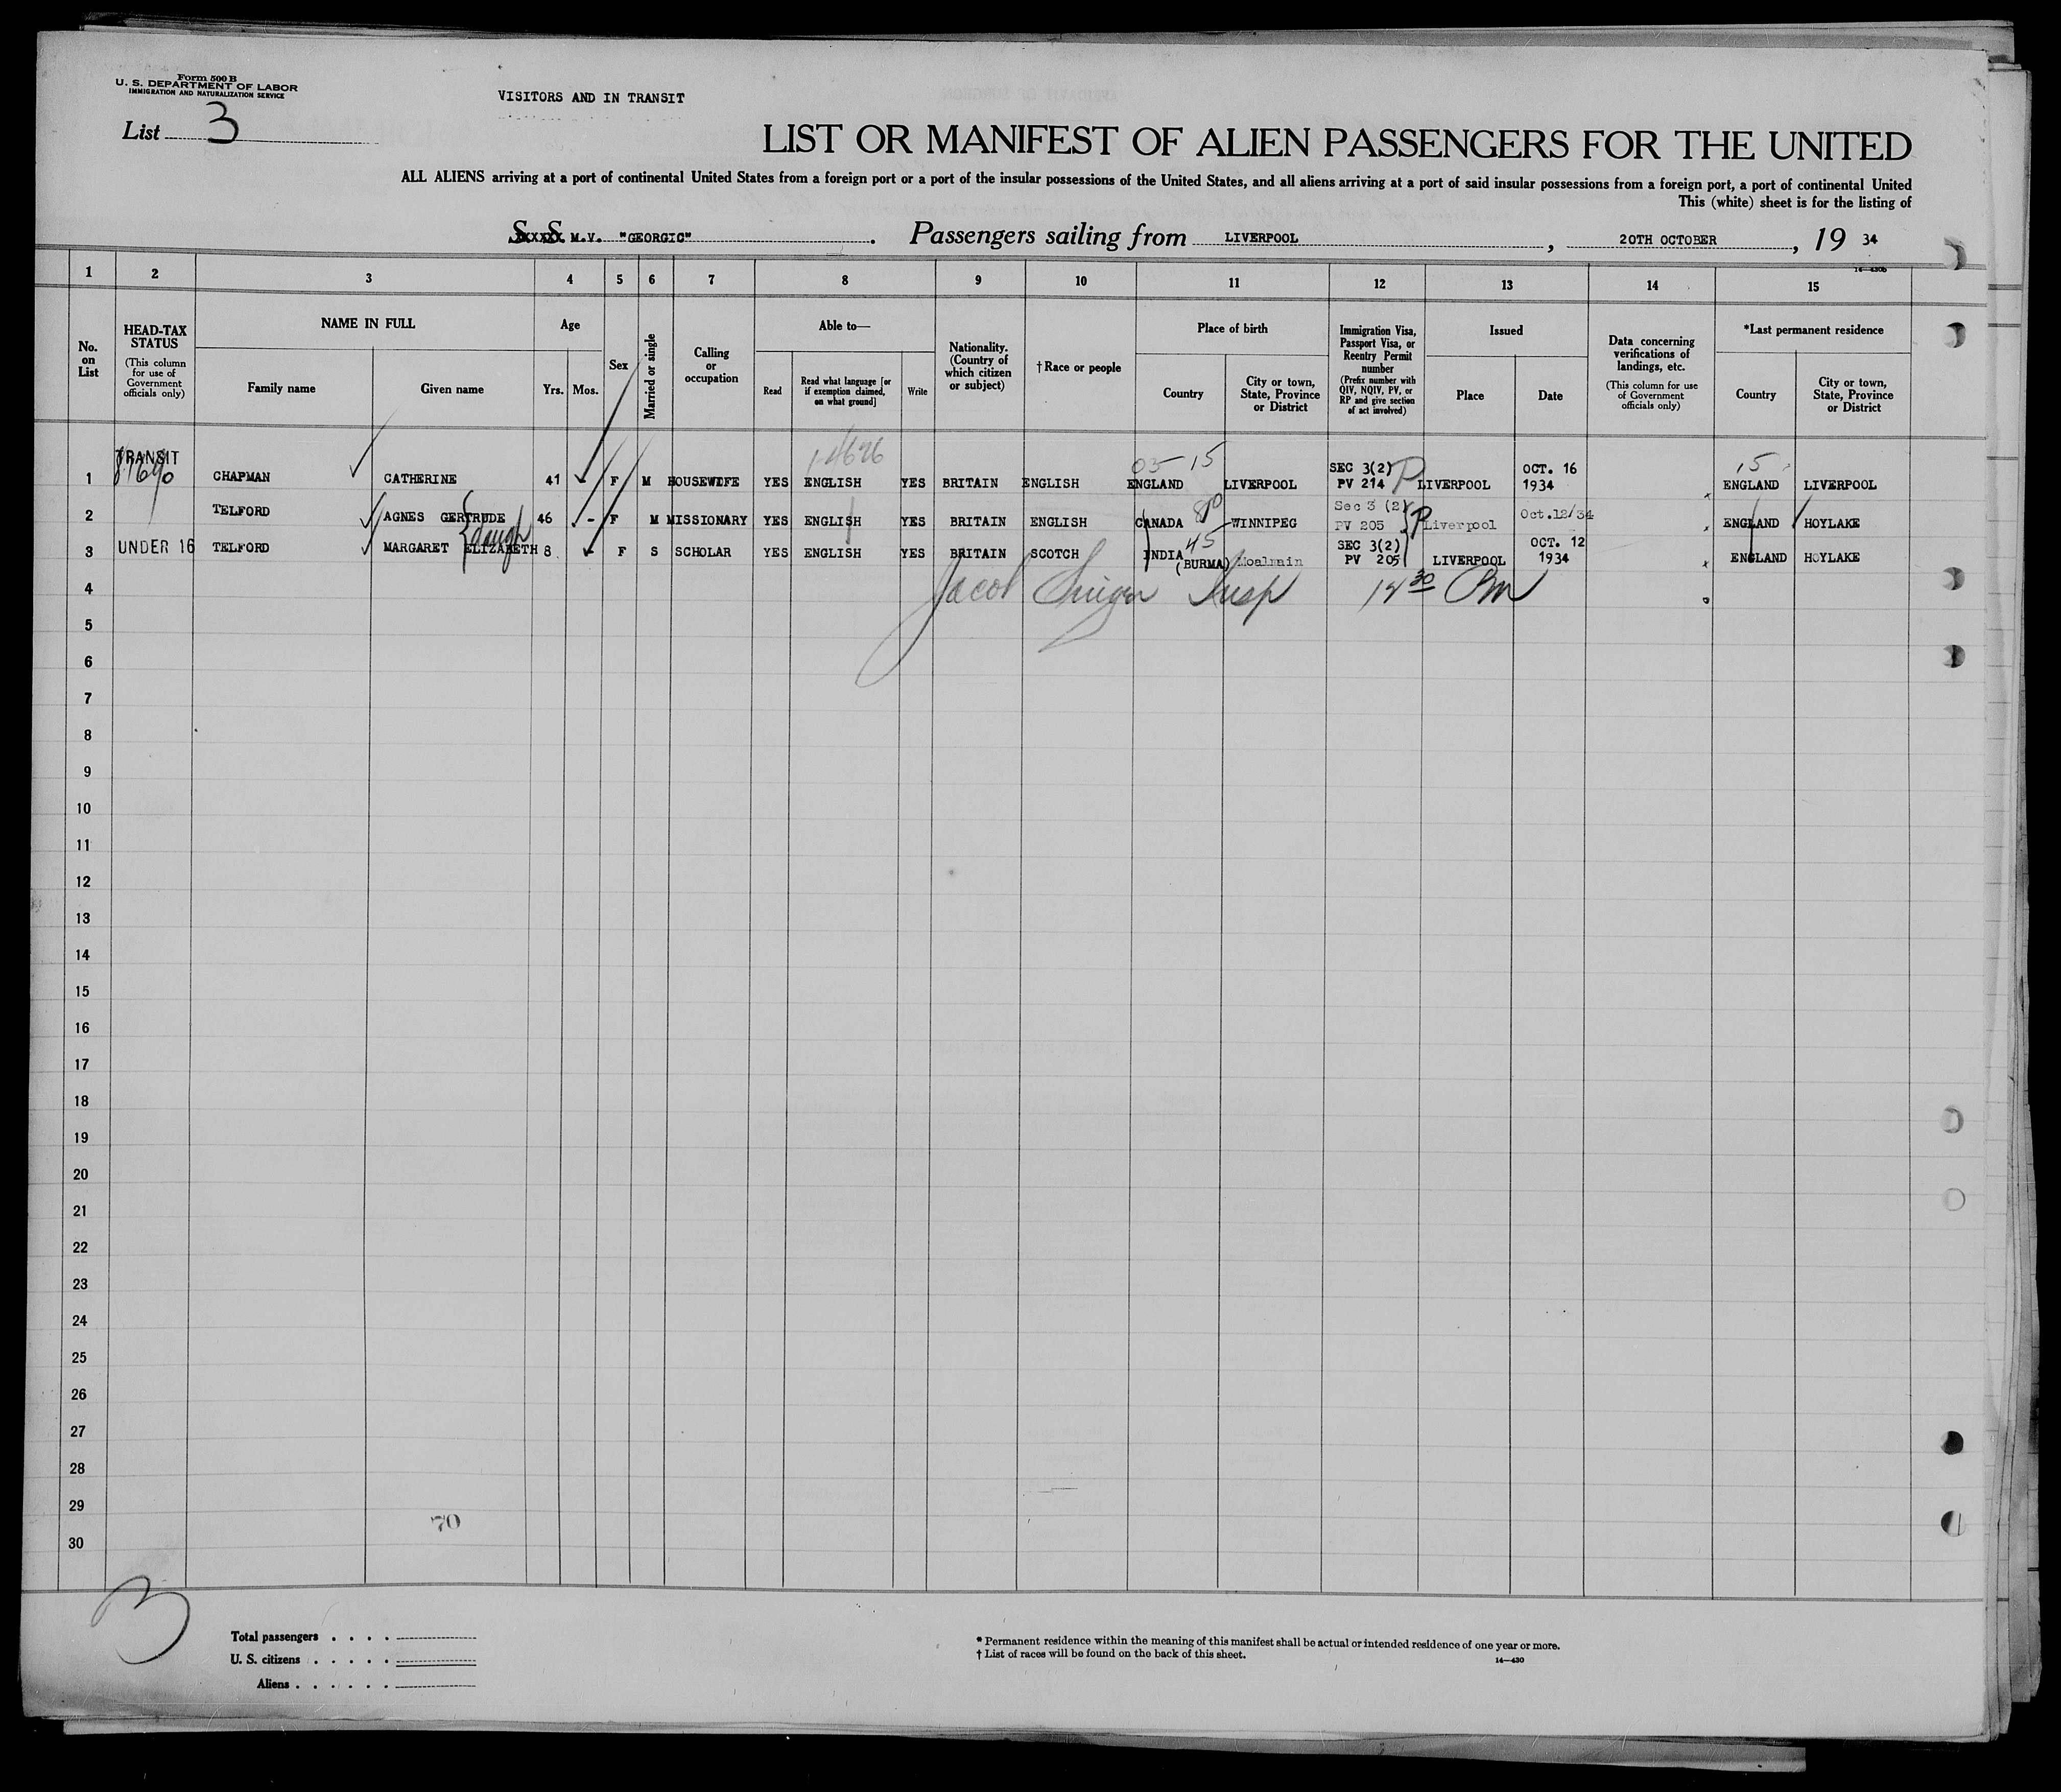 Form 500 B
U. S. DEPARTMENT OF LABOR
IMMIGRATION AND NATURALIZATION SERVICE
VISITORS AND IN TRANSIT
List 3
LIST OR MANIFEST OF ALIEN PASSENGERS FOR THE UNITED
ALL ALIENS arriving at a port of continental United States from a foreign port or a port of the insular possessions of the United States, and all aliens arriving at a port of said insular possessions from a foreign port, a port of continental United
This (white) sheet is for the listing of
S. S. M.V. "GEORGIC". Passengers sailing from LIVERPOOL, 20TH OCTOBER, 19 34
14—430b
1 2 3 4 5 6 7 8 9 10 11 12 13 14 15
No. on List
HEAD-TAX STATUS (This column for use of Government officials only)
NAME IN FULL
Family name
Given name
Age
Yrs.
Mos.
Sex
Married or single
Calling or occupation
Able to—
Read
Read what language [or if exemption claimed, on what ground]
Write
Nationality. (Country of which citizen or subject)
†Race or people
Place of birth
Country
City or town, State, Province or District
Immigration Visa, Passport Visa, or Reentry Permit number (Prefix number with QIV, NQIV, PV, or RP and give section of act involved)
Issued
Place
Date
Data concerning verifications of landings, etc. (This column for use of Government officials only)
*Last permanent residence
Country
City or town, State, Province or District
1-4626
1 TRANSIT CHAPMAN CATHERINE 41 F M HOUSEWIFE YES ENGLISH YES BRITAIN ENGLISH 05 15 ENGLAND LIVERPOOL SEC 3(2) PV 214 P LIVERPOOL OCT. 16 1934 15 ENGLAND LIVERPOOL
2 TELFORD AGNES GERTRUDE 46 - F M MISSIONARY YES ENGLISH YES BRITAIN ENGLISH CANADA 80 WINNIPEG Sec 3 (2) PV 205 P Liverpool Oct.12/34 ENGLAND HOYLAKE
daugh
3 UNDER 16 TELFORD MARGARET ELIZABETH 8 - F S SCHOLAR YES ENGLISH YES BRITAIN SCOTCH 45 INDIA (BURMA) Moalmain SEC 3(2) PV 205 LIVERPOOL OCT. 12 1934 ENGLAND HOYLAKE
4 Jacob Singer Insp 12 30 Pm
5
6
7
8
9
10
11
12
13
14
15
16
17
18
19
20
21
22
23
24
25
26
27
28
29
70
30
3
Total passengers . . . .
U. S. citizens . . . . .
Aliens . . . . . .
* Permanent residence within the meaning of this manifest shall be actual or intended residence of one year or more.
† List of races will be found on the back of this sheet.
14—430